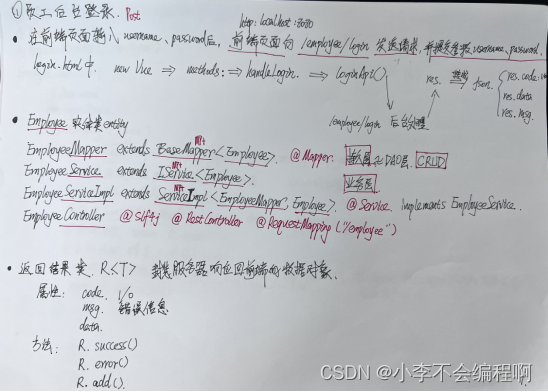 ① 员工后台登录. Post
http: localhost:8080
• 在前端页面输入 username、password后, 前端页面向 /employee/login 发送请求, 并提交参数username、password.
login.html中. new Vue ⇒ methods: ⇒ handleLogin. ⇒ loginApi() res. json. { res.code
res.data
res.msg.
/employee/login 后台处理
• Employee 实体类entity
MP中
EmployeeMapper extends BaseMapper<Employee>. @Mapper. DAO层. CRUD
EmployeeService extends IService<Employee>. 业务层
EmployeeServiceImpl extends ServiceImpl<EmployeeMapper, Employee> @Service. implements EmployeeService.
EmployeeController @Slf4j @RestController @RequestMapping("/employee")
• 返回结果类. R<T> 封装服务器响应回前端的数据对象.
属性: code. 1/0
msg. 错误信息
data.
方法: R. success()
R. error()
R. add().
CSDN @小李不会编程啊